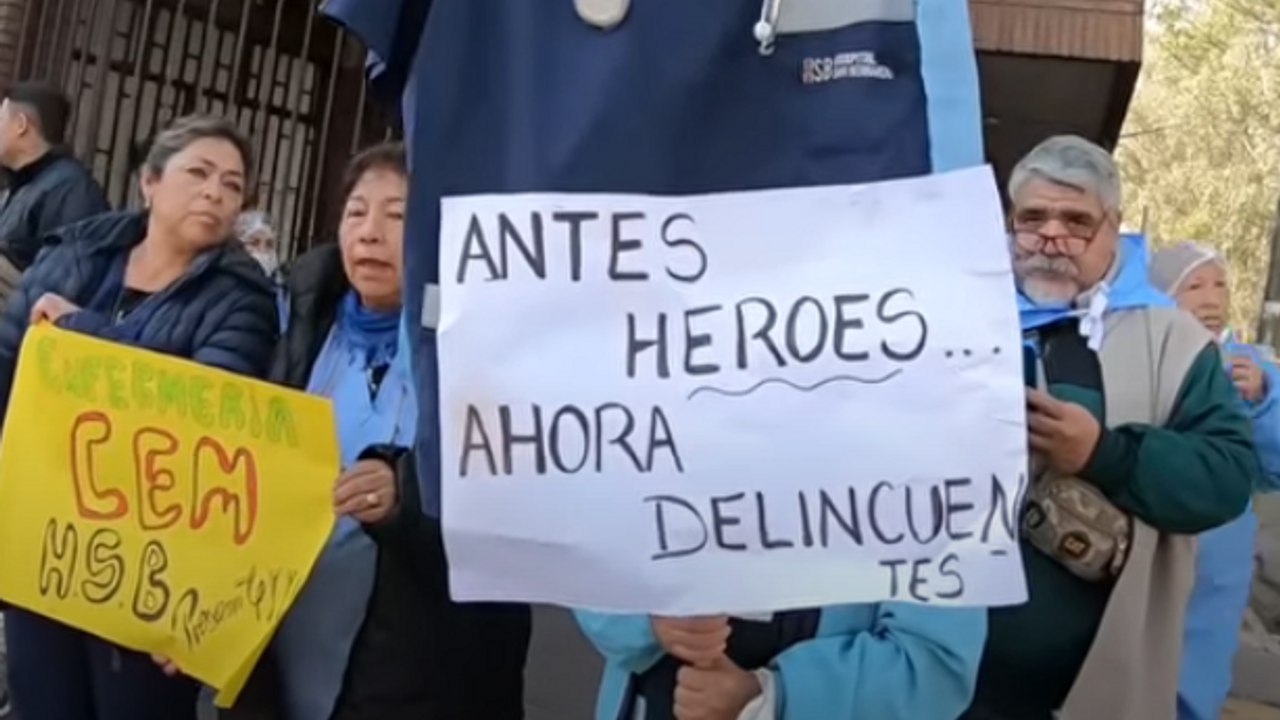 HSB HOSPITAL
SAN BERNARDO
ANTES
HEROES...
AHORA
DELINCUEN
TES
ENFERMERIA
CEM
H.S.B
CAT